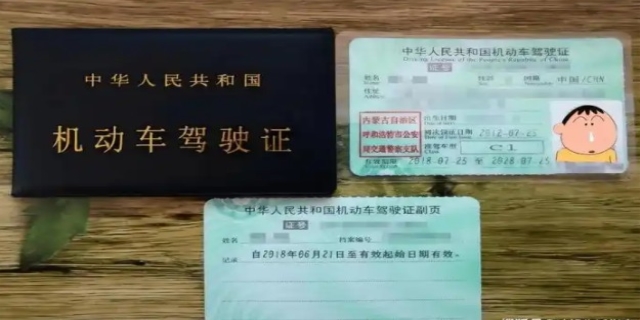 中华人民共和国
机动车驾驶证
中华人民共和国机动车驾驶证
Driving License of the People's Republic of China
证号
姓名
性别
国籍
中国/CHN
住址
内蒙古自治区
呼和浩特市公安
局交通警察支队
出生日期
初次领证日期 2012-07-25
准驾车型
Class
C1
有效期限
2018-07-25 至 2028-07-25
中华人民共和国机动车驾驶证副页
证号
姓名
档案编号
记录
自2018年06月21日至有效起始日期有效。